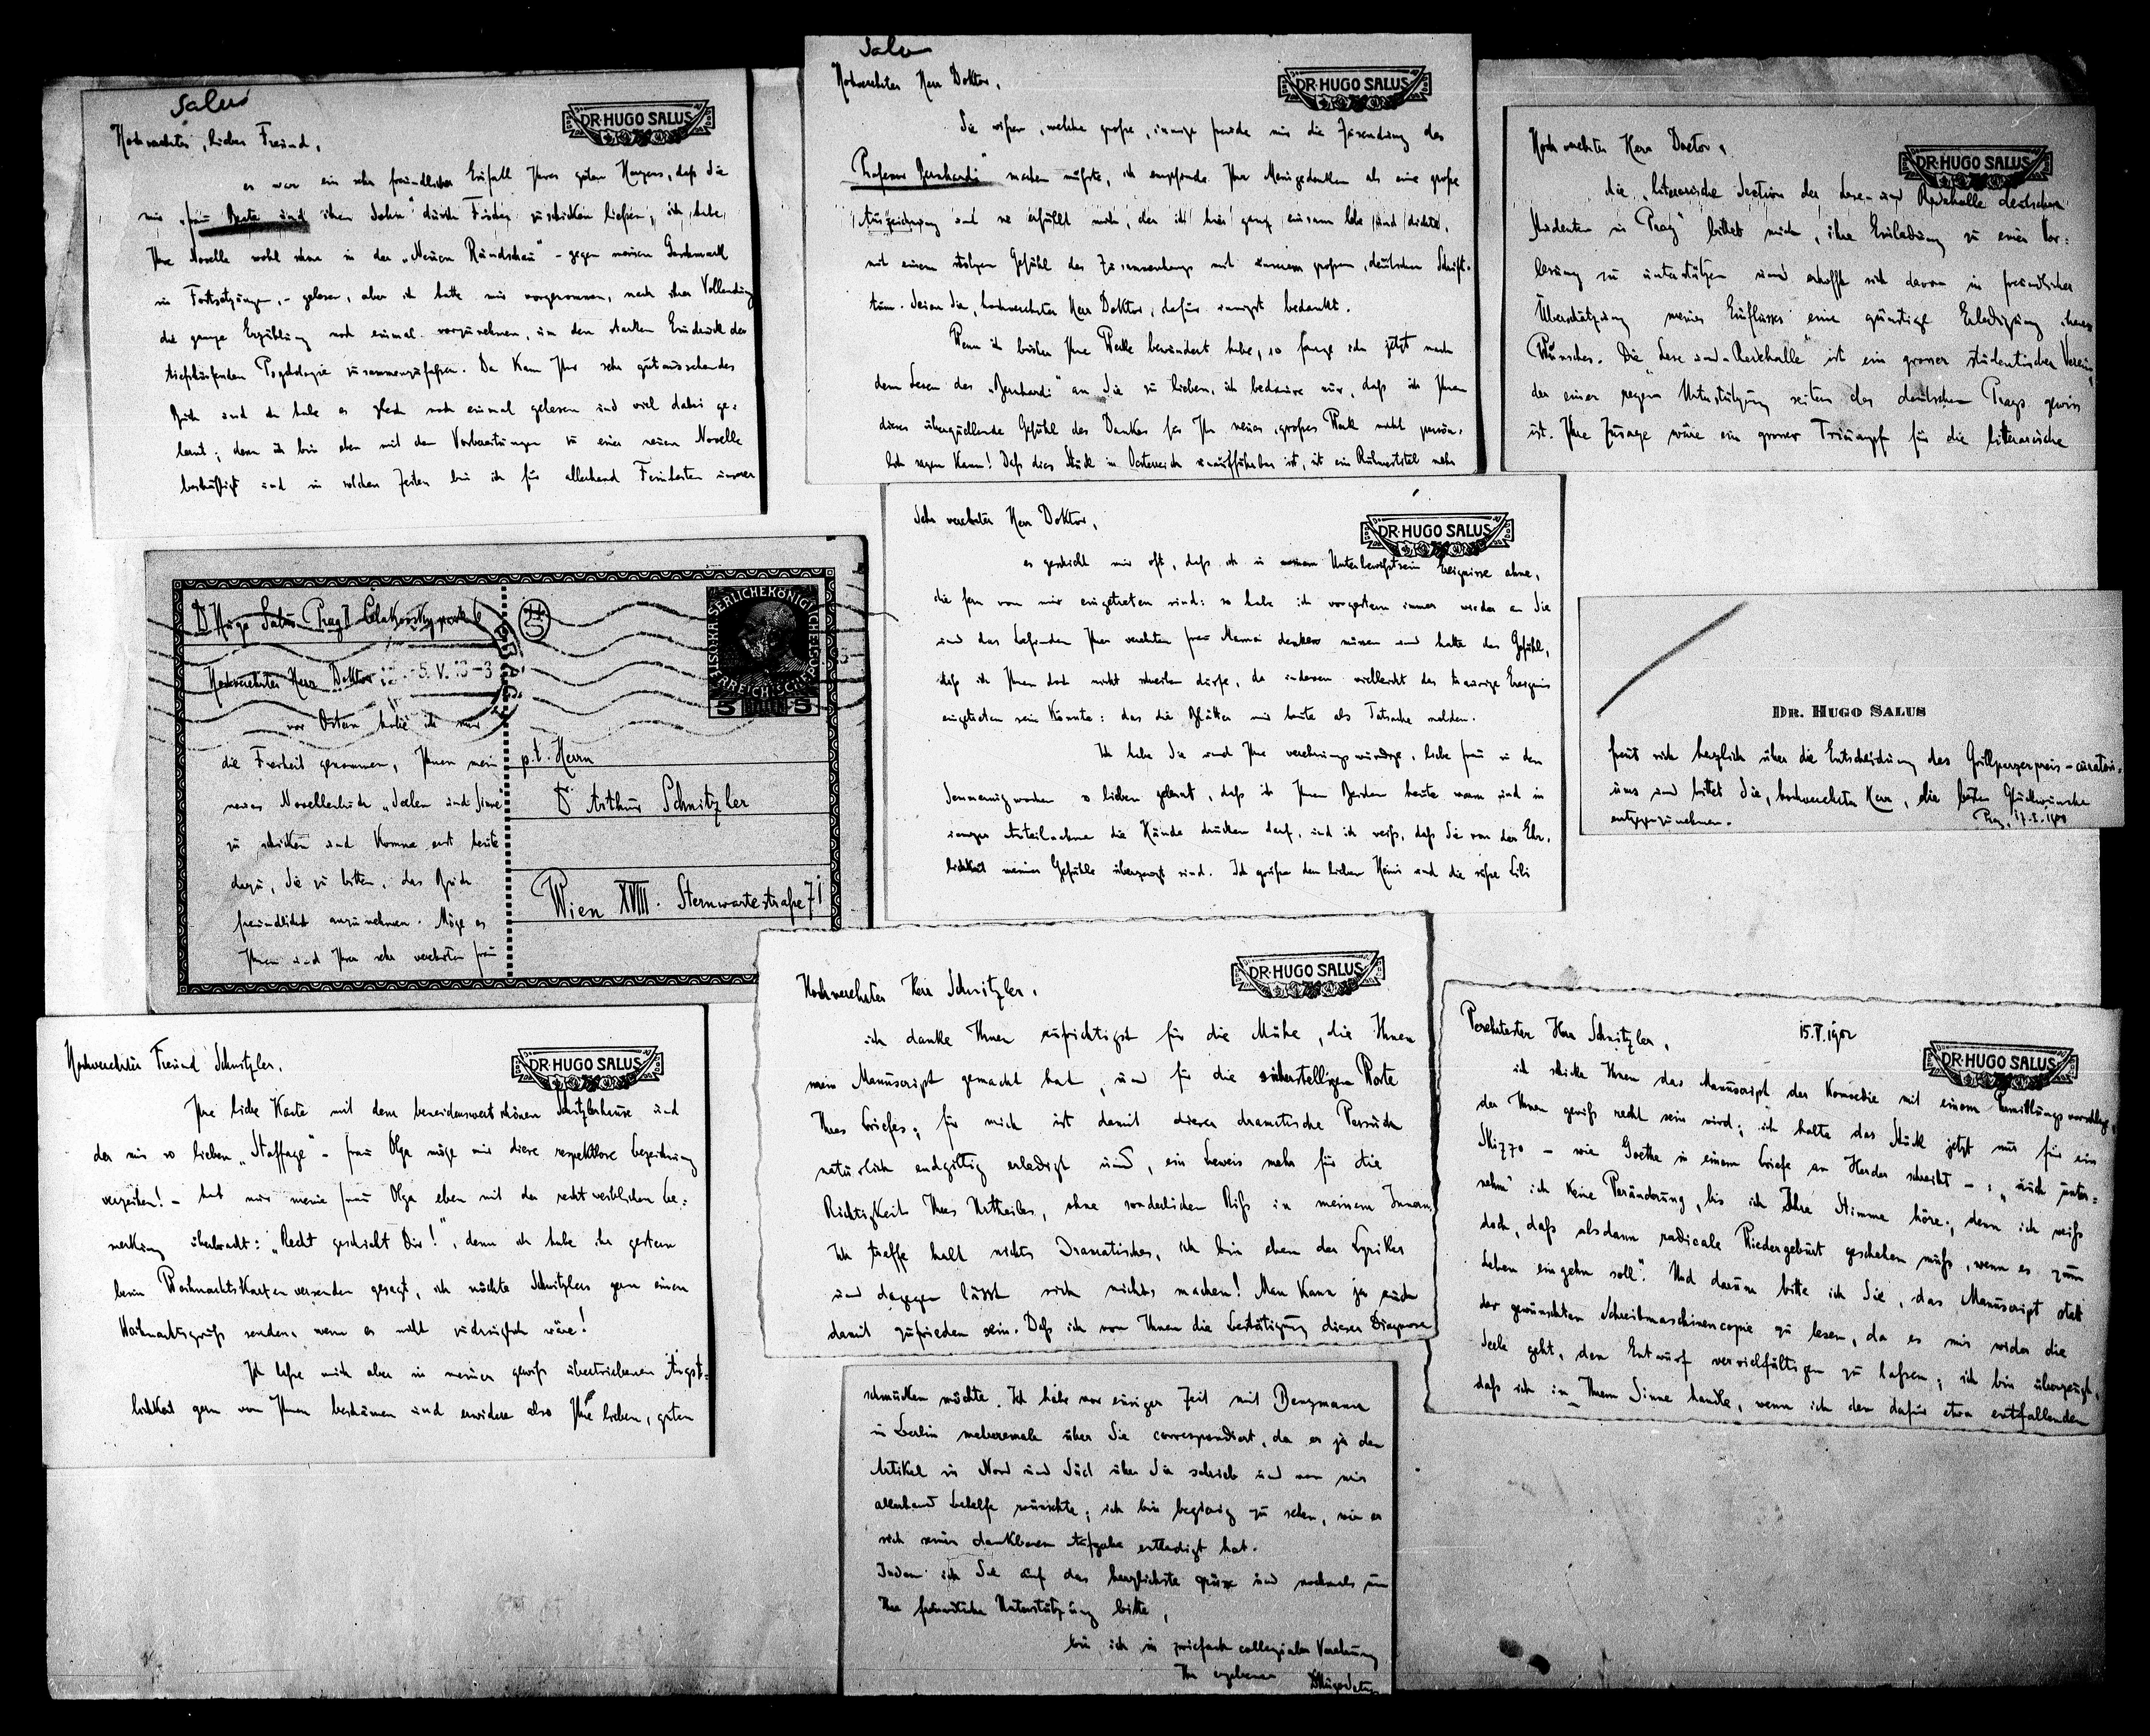 Salus
DR·HUGO SALUS
Hochverehrter, lieber Freund,
es war ein sehr freundlicher Einfall Ihres guten Herzens, daß Sie
mir „Frau Beate und ihren Sohn“ durch Fischer zuschicken ließen; ich habe
Ihre Novelle wohl schon in der „Neuen Rundschau“ – gegen meinen Geschmack
in Fortsetzungen, – gelesen, aber ich hatte mir vorgenommen, nach ihrer Vollendung
die ganze Erzählung noch einmal vorzunehmen, um den starken Eindruck der
tiefschürfenden Psychologie zusammenzufassen. Da kam Ihr sehr gut aussehendes
Buch und ich habe es gleich noch einmal gelesen und viel dabei ge:
lernt; denn ich bin eben mit den Vorbereitungen zu einer neuen Novelle
beschäftigt und in solchen Zeiten bin ich für allerhand Feinheiten unserer
Salus
DR·HUGO SALUS
Hochverehrter Herr Doktor,
Sie wissen, welche große, innige Freude mir die Zusendung des
„Professor Bernhardi“ machen müßte, ich empfinde Ihr Meingedenken als eine große
Auszeichnung und sie erfüllt mich, der ich hier ganz einsam lebe und dichte,
mit einem stolzen Gefühl des Zusammenhangs mit unserem großen, deutschen Schrift-
tum. Seien Sie, hochverehrter Herr Doktor, dafür innigst bedankt.
Wenn ich bisher Ihre Werke bewundert habe, so fange ich jetzt nach
dem Lesen des „Bernhardi“ an Sie zu lieben, ich bedaure nur, daß ich Ihnen
dieses überquellende Gefühl des Dankes für Ihr neues, großes Werk nicht persön-
lich sagen kann! Daß dies Stück in Oesterreich unaufführbar ist, ist ein Ruhmestitel mehr
DR·HUGO SALUS
Hochverehrter Herr Doctor,
die „literarische Section der Lese- und Redehalle deutscher
Studenten in Prag“ bittet mich, ihre Einladung zu einer Vor:
lesung zu unterstützen und erhofft sich davon in freundlicher
Überschätzung meines Einflusses eine günstige Erledigung ihres
Wunsches. Die „Lese und-Redehalle“ ist ein grosser studentischer Verein,
der einer regen Unterstützung seitens des deutschen Prags gewiss
ist. Ihre Zusage wäre ein grosser Triumpf für die literarische
Dr Hugo Salus Prag II Celakovskypark 6
Hochverehrter Herr Doktor
-5.V.13-3
vor Ostern habe ich mir
die Freiheit genommen, Ihnen mein
neues Novellenbuch „Seelen und Sinne“
zu schicken und komme erst heute
dazu, Sie zu bitten, das Buch
freundlichst anzunehmen. Möge es
Ihnen und Ihrer sehr verehrten Frau
5 5
p.t. Herrn
Dr Arthur Schnitzler
Wien XVIII. Sternwartestraße 71
DR·HUGO SALUS
Sehr verehrter Herr Doktor,
es geschieht mir oft, daß ich in meinem Unterbewußtsein Ereignisse ahne,
die fern von mir eingetreten sind: so habe ich vorgestern immer wieder an Sie
und das Befinden Ihrer verehrten Frau Mama denken müssen und hatte das Gefühl,
daß ich Ihnen doch nicht schreiben dürfe, da indessen vielleicht das traurige Ereignis
eingetreten sein könnte: das die Blätter mir heute als Tatsache melden.
Ich habe Sie und Ihre verehrungswürdige, liebe Frau in den
Semmeringwochen so lieben gelernt, daß ich Ihnen Beiden heute warm und in
inniger Anteilnahme die Hände drücken darf, und ich weiß, daß Sie von der Ehr-
lichkeit meiner Gefühle überzeugt sind. Ich grüße den lieben Heini und die süße Lili
DR. HUGO SALUS
freut sich herzlich über die Entscheidung des Grillparzerpreis-curatori-
ums und bittet Sie, hochverehrter Herr, die besten Glückwünsche
entgegenzunehmen.
Prag, 17.I.1908
DR·HUGO SALUS
Hochverehrter Freund Schnitzler,
Ihre liebe Karte mit dem beneidenswert schönen Schnitzlerhause und
der mir so lieben „Staffage“ – Frau Olga möge mir diese respektlose Bezeichnung
verzeihen! – hat mir meine Frau Olga eben mit der recht weiblichen Be:
merkung überbracht: „Recht geschieht Dir!“, denn ich habe ihr gestern
beim Weihnachtskartenversenden gesagt, ich möchte Schnitzlers gern einen
Weihnachtsgruß senden, wenn es nicht zudringlich wäre!
Ich lasse mich aber in meiner gewiß übertriebenen Ängst-
lichkeit gern von Ihnen beschämen und erwidere also Ihre lieben, guten
DR·HUGO SALUS
Hochverehrter Herr Schnitzler,
ich danke Ihnen aufrichtigst für die Mühe, die Ihnen
mein Manuscript gemacht hat, und für die Worte
Ihres Briefes; für mich ist damit dieser dramatische Versuch
natürlich endgiltig erledigt und, ein Beweis mehr für die
Richtigkeit Ihres Urtheiles, ohne sonderlichen Riß in meinem Innern.
Ich treffe halt nichts Dramatisches, ich bin eben der Lyriker
und dagegen lässt sich nichts machen! Man kann ja auch
damit zufrieden sein. Daß ich von Ihnen die Bestätigung dieser Diagnose
DR·HUGO SALUS
15.V.1902
Verehrtester Herr Schnitzler,
ich schicke Ihnen das Manuscript der Komoedie mit einem Vermittlungsvorschlage,
der Ihnen gewiß recht sein wird; ich halte das Stück jetzt nur für ein
Skizzo – wie Goethe in einem Briefe an Herder schreibt –: „auch unter-
nehm' ich keine Veränderung, bis ich Ihre Stimme höre; denn ich weiß
doch, daß alsdann radicale Wiedergeburt geschehen muß, wenn es zum
Leben eingehn soll“. Und darum bitte ich Sie, das Manuscript statt
der gewünschten Schreibmaschinencopie zu lesen, da es mir wider die
Seele geht, den Entwurf vervielfältigen zu laßen; ich bin überzeugt,
daß ich in Ihrem Sinne handle, wenn ich den dafür etwa entfallenden
schmücken möchte. Ich habe vor einiger Zeit mit Benzmann
in Berlin mehreremale über Sie correspondiert, da er ja den
Artikel in Nord und Süd über Sie schrieb und von mir
allerhand Behelfe wünschte; ich bin begierig zu sehen, wie er
sich seiner dankbaren Aufgabe entledigt hat.
Indem ich Sie auf das herzlichste grüsse und nochmals um
Ihre freundliche Unterstützung bitte,
bin ich in zwiefach collegialer Verehrung
Ihr ergebener DrHugoSalus